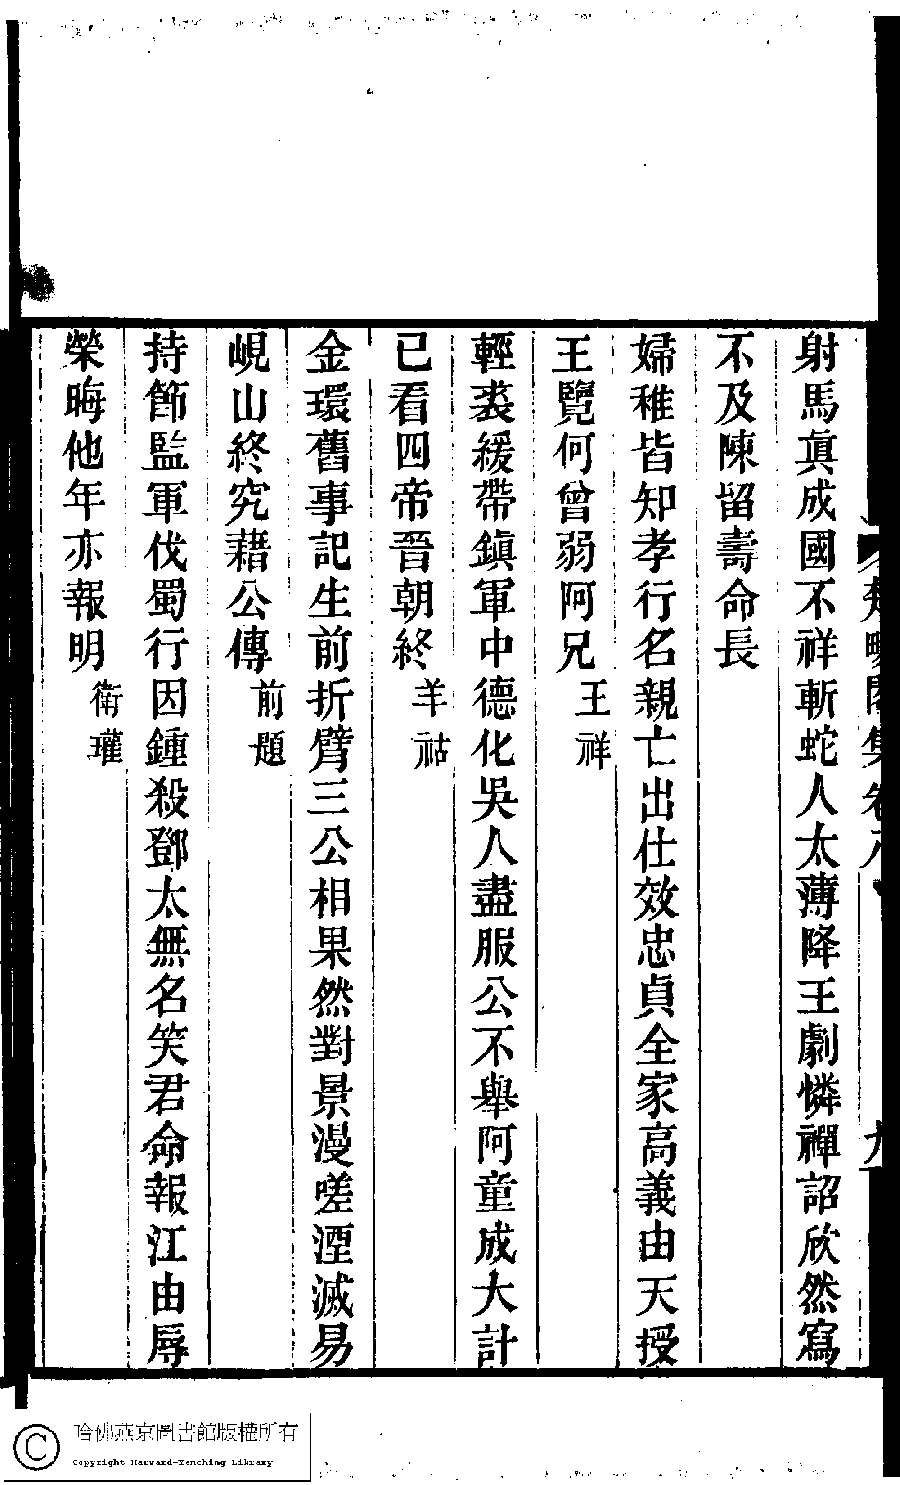 射馬眞成國不祥斬蛇人太薄降王劇憐禪詔欣然寫
不及陳留壽命長
婦稚皆知孝行名親亡出仕效忠貞全家高義由天授
王覽何曾弱阿兄 王祥
輕裘緩帶鎭軍中德化吳人盡服公不舉阿童成大計
已看四帝晉朝終 羊祜
金環舊事記生前折臂三公相果然對景漫嗟湮滅易
峴山終究藉公傳 前題
持節監軍伐蜀行因鍾殺鄧太無名笑君命報江由辱
榮晦他年亦報明 衛瓘
哈佛燕京圖書館版權所有
Copyright Harvard-Yenching Library